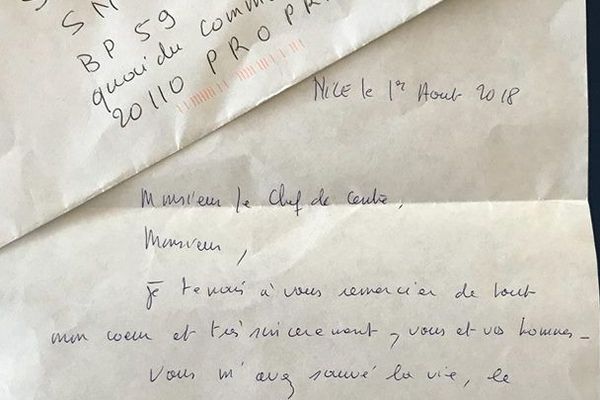 SN
BP 59
quai du comm
20110 PROPR
NICE le 1er Aout 2018
Monsieur le Chef de centre,
Monsieur,
je tenais à vous remercier de tout
mon coeur et très sincerement, vous et vos hommes_
Vous m'avez sauvé la vie, le